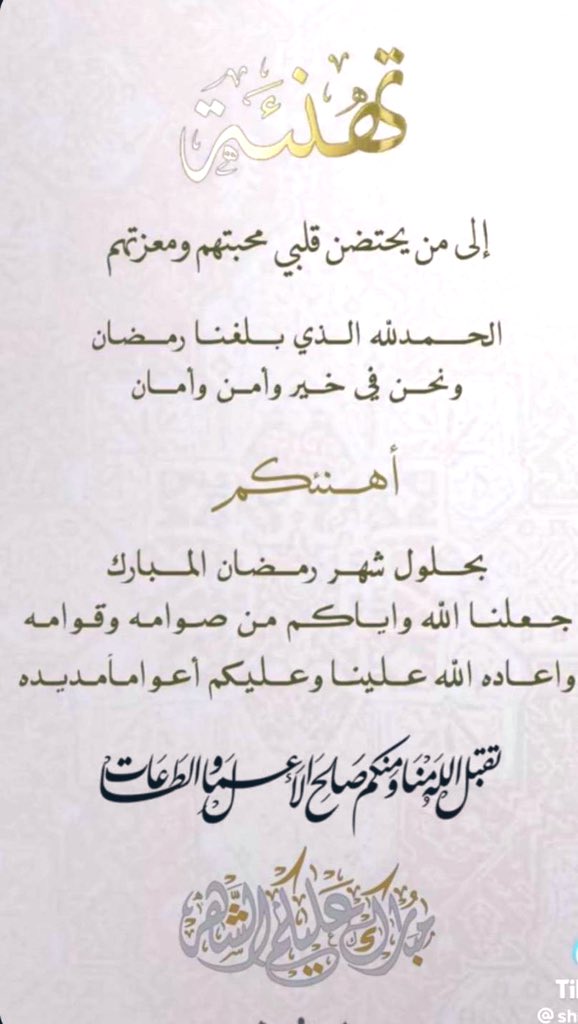 تهنئة
إلى من يحتضن قلبي محبتهم ومعزتهم
الحمدلله الذي بلغنا رمضان
ونحن في خير وأمن وأمان
أهنئكم
بحلول شهر رمضان المبارك
جعلنا الله واياكم من صوامه وقوامه
واعاده الله علينا وعليكم أعواماًمديده
تقبل الله منا ومنكم صالح الأعمال والطاعات
مبارك عليكم الشهر